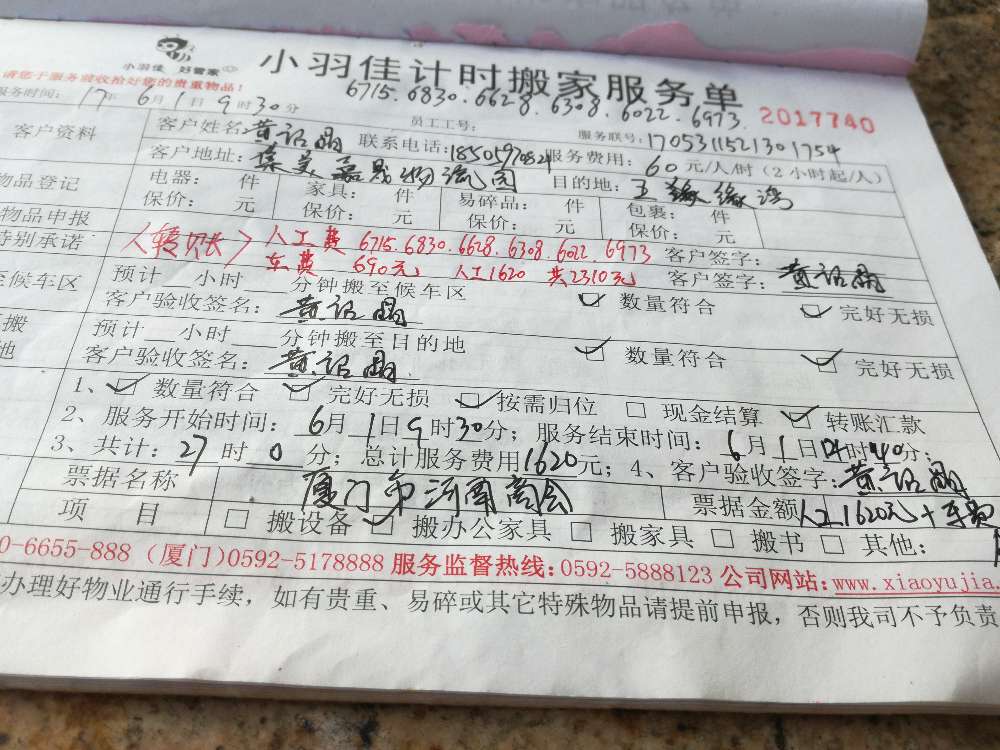 小羽佳 好管家
小羽佳计时搬家服务单
请您于服务前收拾好您的贵重物品!
6715.6830.6628.6308.6022.6973.
2017740
服务时间: 17年6月1日9时30分
员工工号:
服务联号: 170531152130 1754
客户资料
客户姓名: 黄 联系电话: 18505970824 服务费用: 60元/人/时(2小时起/人)
客户地址: 集美 物流园 目的地: 五缘湾
物品登记
电器: 件 家具: 件 易碎品: 件 包裹: 件
物品申报
保价: 元 保价: 元 保价: 元 保价: 元
特别承诺
<转账> 人工费 6715.6830.6628.6308.6022.6973 客户签字:
车费 690元 人工1620 共2310元 客户签字: 黄
至候车区
预计__小时__分钟搬至候车区 ☑ 数量符合 ☑ 完好无损
客户验收签名: 黄
搬
地
预计__小时__分钟搬至目的地 ☑ 数量符合 ☑ 完好无损
客户验收签名: 黄
1、☑ 数量符合 ☑ 完好无损 ☑ 按需归位 □ 现金结算 ☑ 转账汇款
2、服务开始时间: 6月1日9时30分; 服务结束时间: 6月1日14时40分;
3、共计: 27时0分; 总计服务费用1620元; 4、客户验收签字: 黄
票据名称 厦门市河南商会 票据金额 人工1620元+车费
项 目 □ 搬设备 ☑ 搬办公家具 □ 搬家具 □ 搬书 □ 其他:
0-6655-888 (厦门)0592-5178888 服务监督热线:0592-5888123 公司网站:www.xiaoyujia.
办理好物业通行手续, 如有贵重、易碎或其它特殊物品请提前申报, 否则我司不予负责